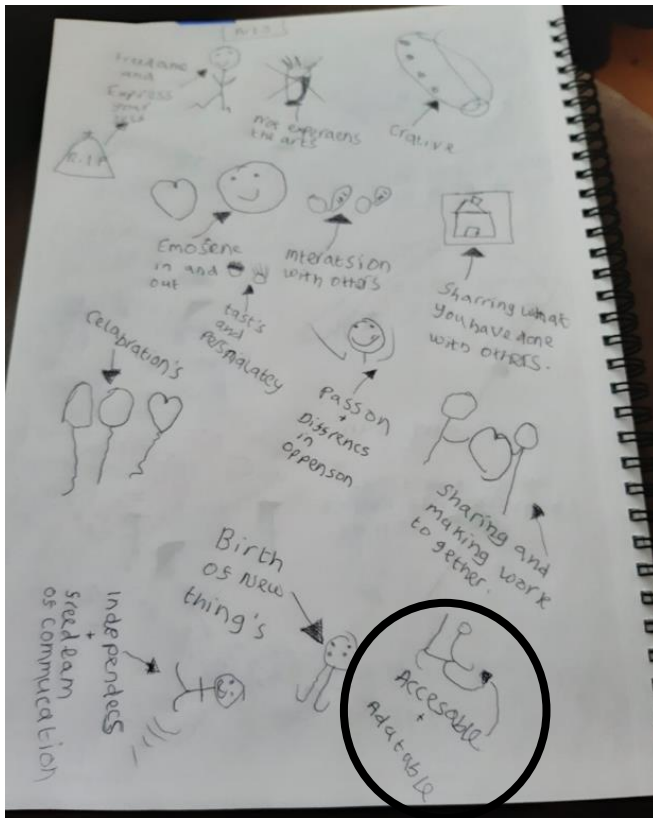 and
Express
your
R.I.P
Not experaens
the arts
Crative
Emosene
in and
out
Interatsion
with others
Sharring what
you have done
with others.
tast's
and
Persmalatey
Celabration's
Passon
+
Diffrencs
in
oppenson
Sharing and
making work
to gether.
Birth
of New
thing's
Independess
+
freedeam
of commucation
Accesable
+
Adatable